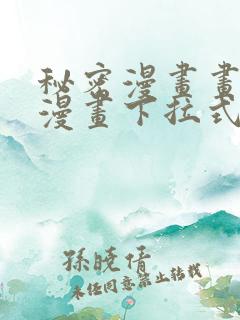 秘密漫畫畫
漫畫下拉式
孫曉倩
未经同意禁止转载